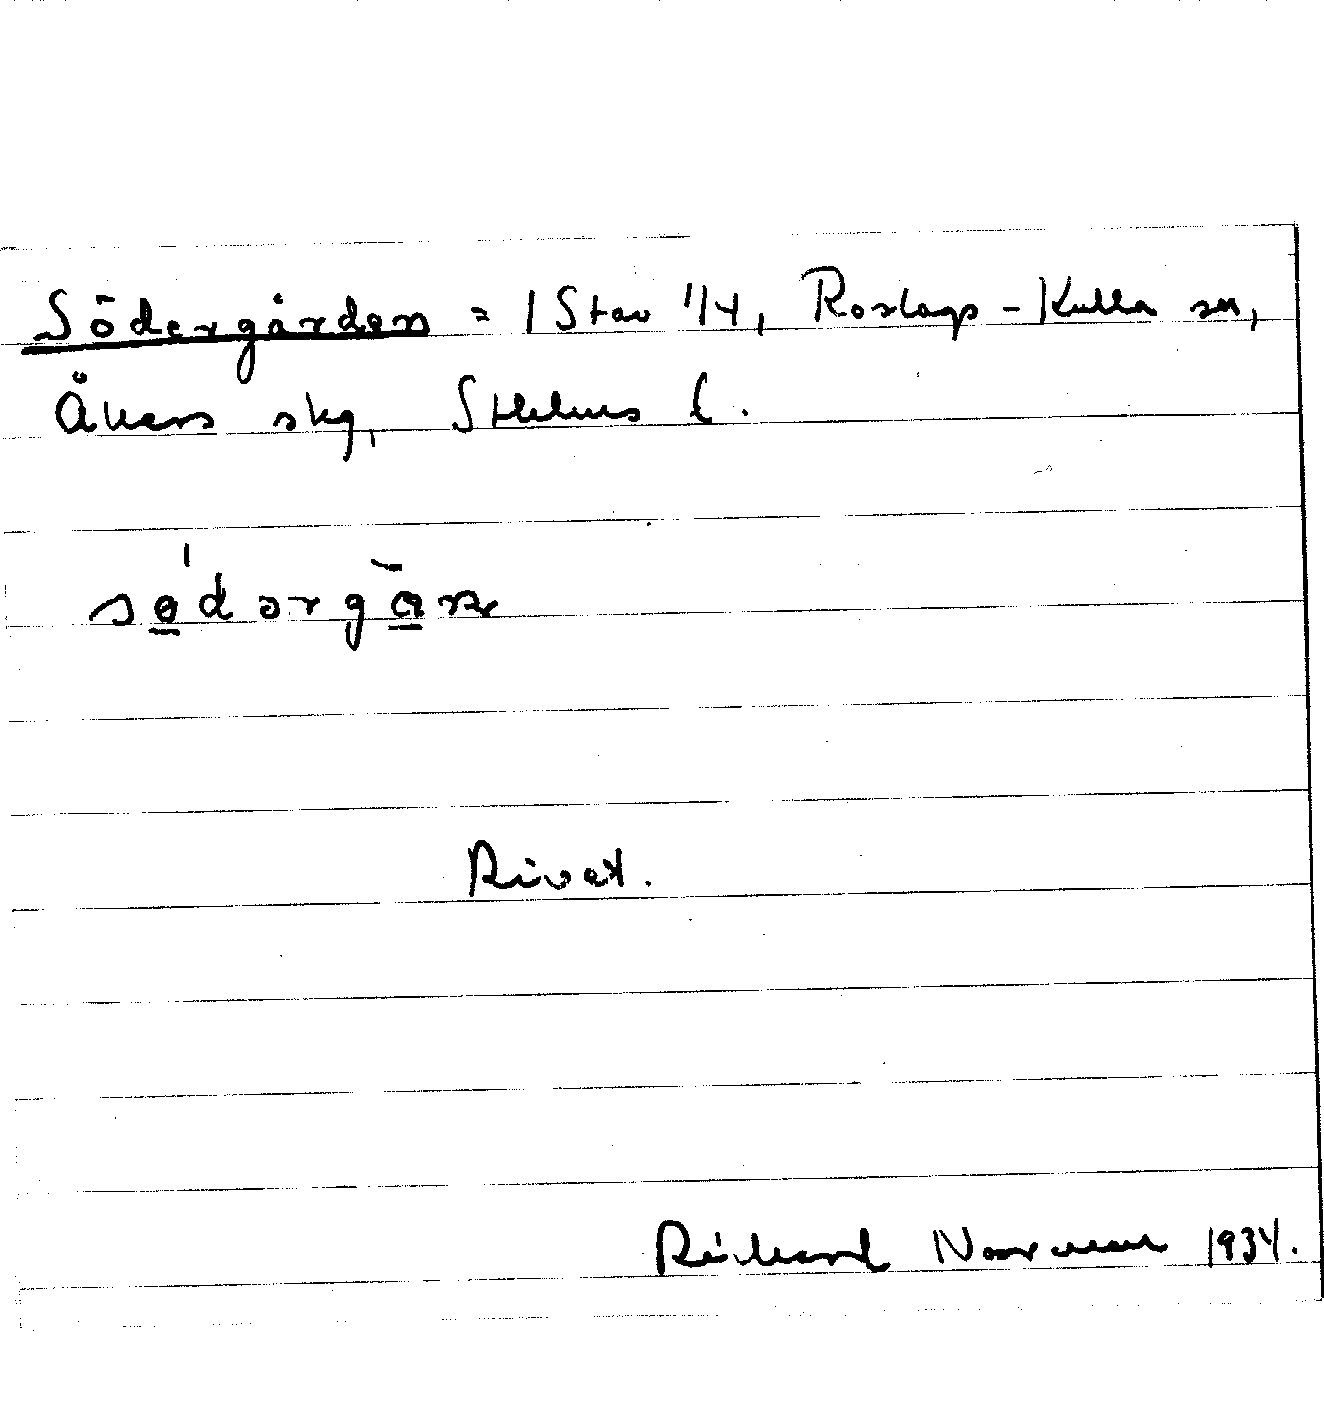 Södergården = 1 Stav 1/4, Roslags-Kulla sn,
Åkers skg, Sthlms l.
sødərgån
Rivet.
Rickard Norrman 1934.